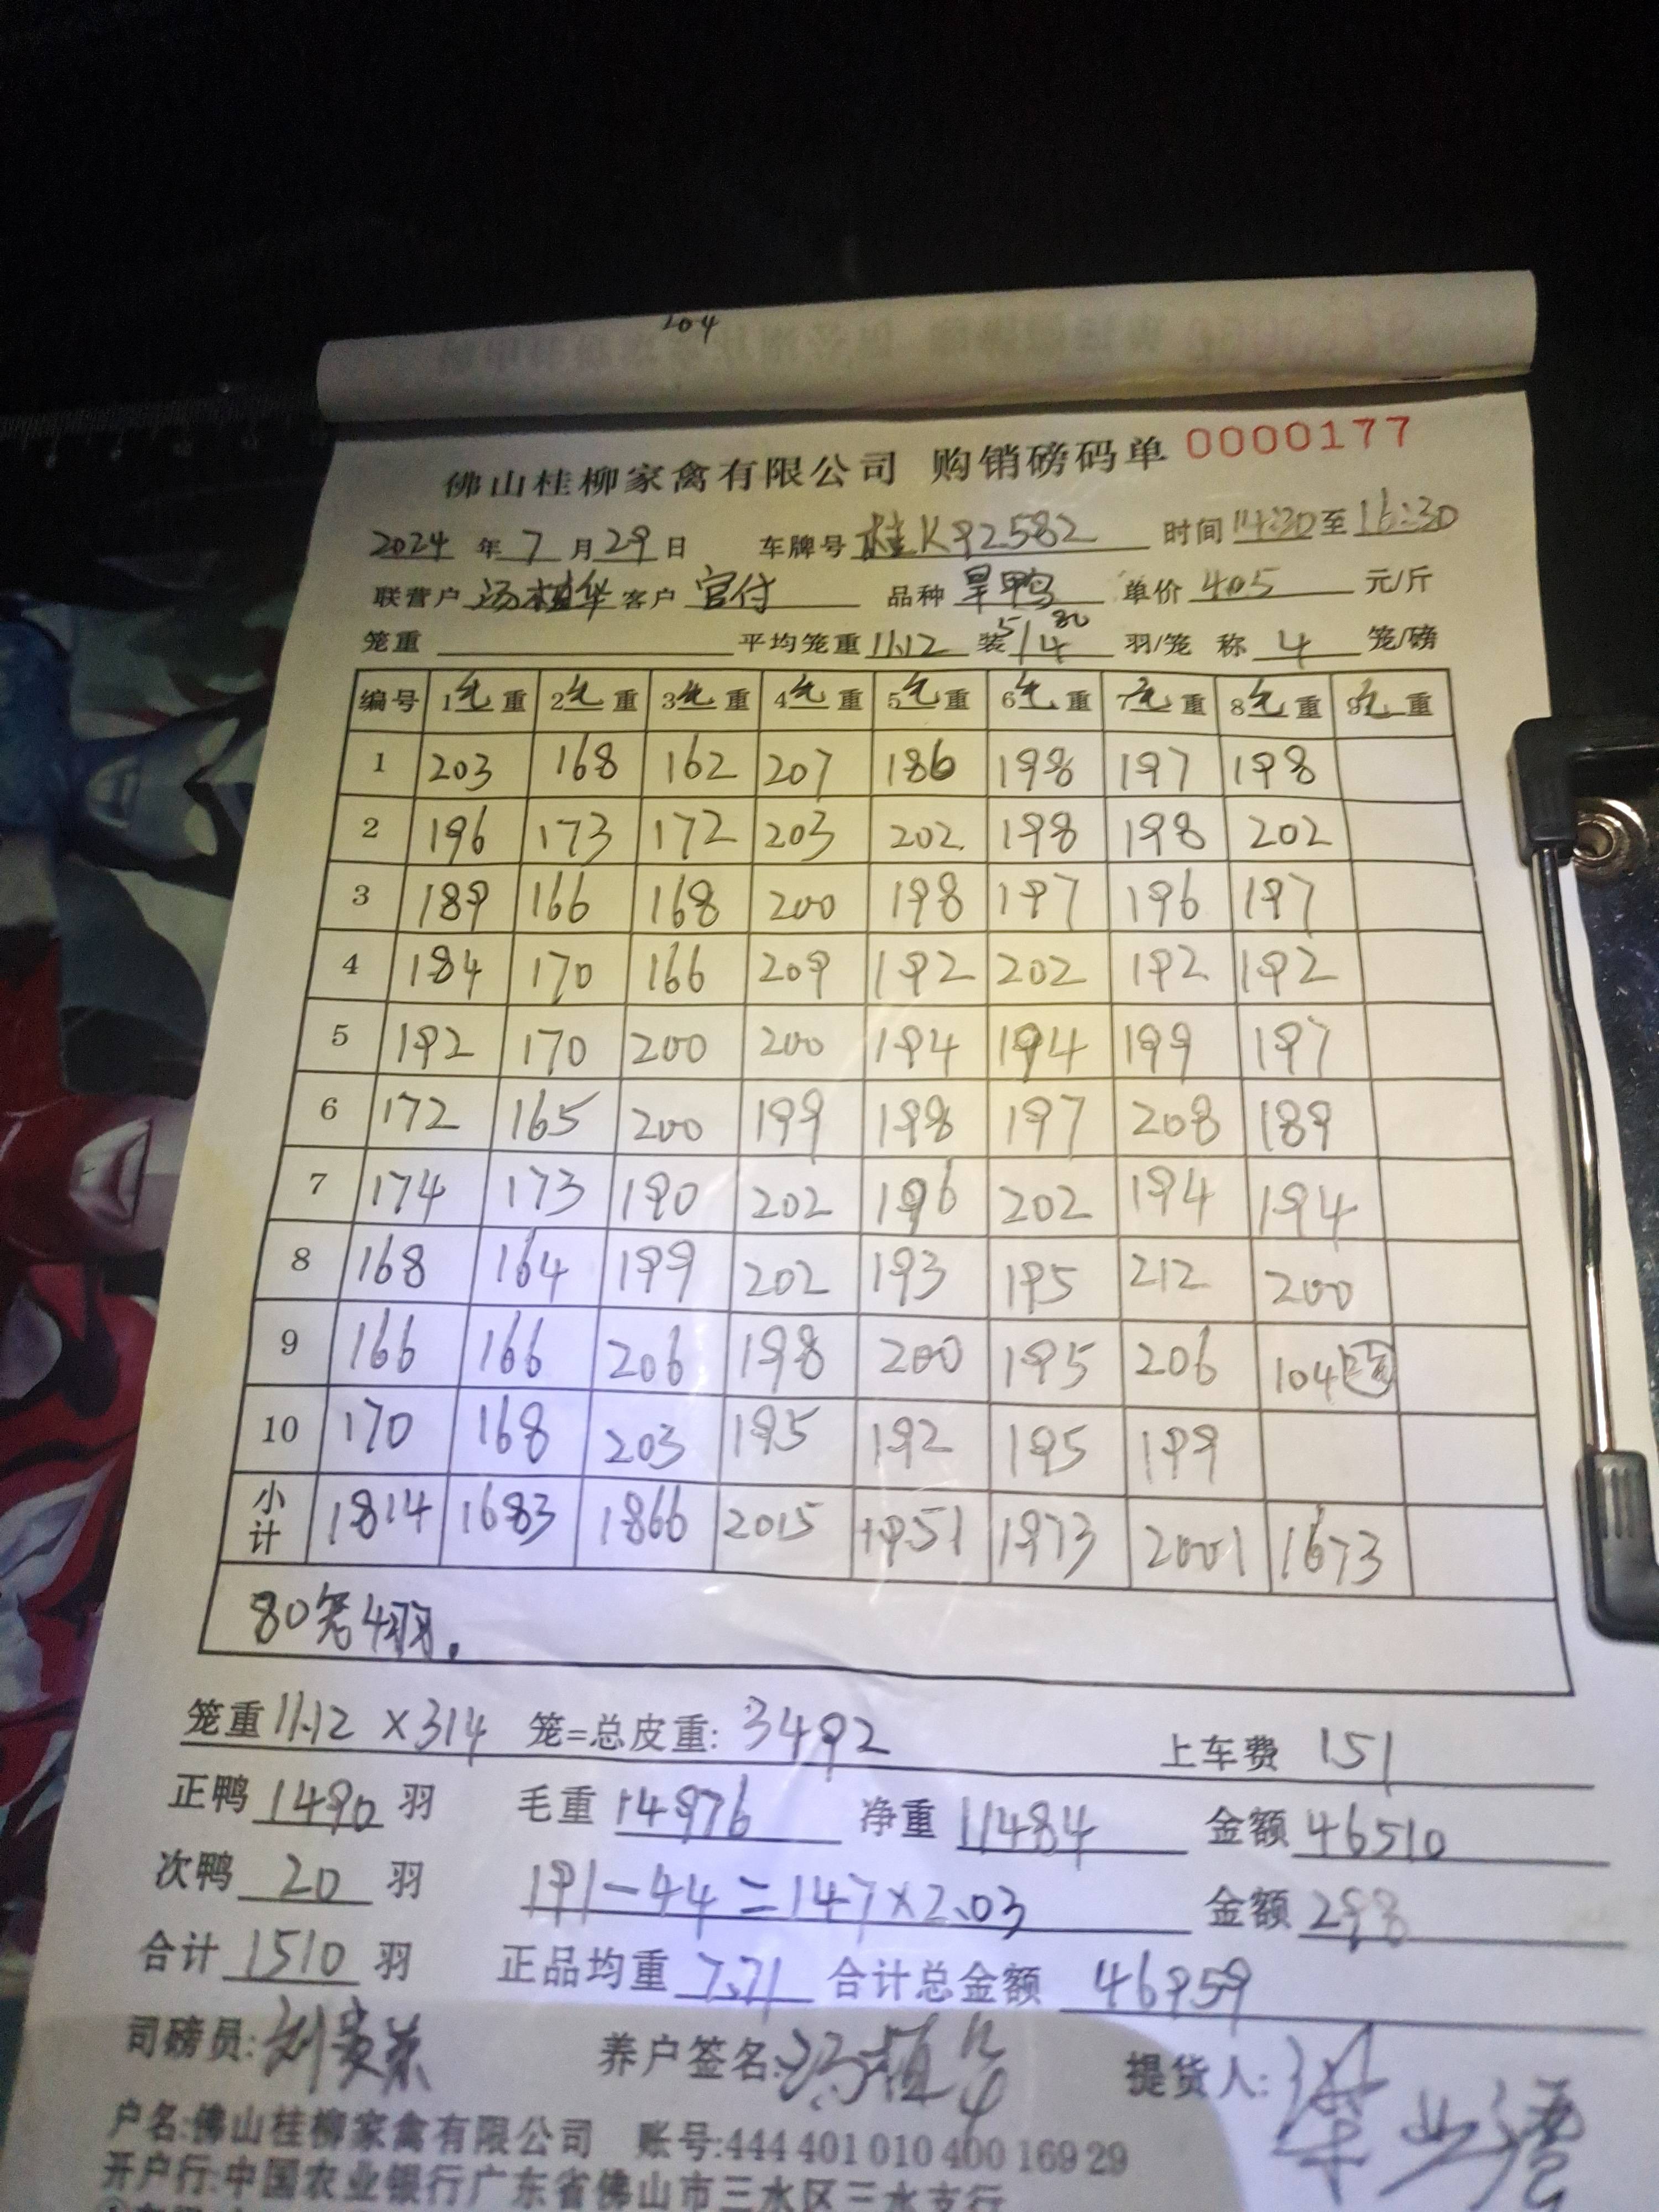 204
佛山桂柳家禽有限公司 购销磅码单 0000177
2024 年 7 月 29 日 车牌号 桂K92582 时间 14:30 至 16:30
联营户 汤植华 客户 官付 品种 旱鸭 单价 405 元/斤
笼重 平均笼重 11.12 装 5/4 80 羽/笼 称 4 笼/磅
编号 1毛重 2毛重 3毛重 4毛重 5毛重 6毛重 7毛重 8毛重 9毛重
1 203 168 162 207 186 198 197 198
2 196 173 172 203 202 198 198 202
3 189 166 168 200 198 197 196 197
4 184 170 166 209 192 202 192 192
5 192 170 200 200 194 194 199 197
6 172 165 200 199 198 197 208 189
7 174 173 190 202 196 202 194 194
8 168 164 199 202 193 195 212 200
9 166 166 206 198 200 195 206 104
10 170 168 203 195 192 195 199
小计 1814 1683 1866 2015 1951 1973 2001 1673
80笼4羽.
笼重 11.12 × 314 笼=总皮重: 3492 上车费 151
正鸭 1490 羽 毛重 14976 净重 11484 金额 46510
次鸭 20 羽 191-44=147×2.03 金额 298
合计 1510 羽 正品均重 7.71 合计总金额 46959
司磅员: 养户签名: 汤植华 提货人:
户名:佛山桂柳家禽有限公司 账号:444 401 010 400 169 29
开户行:中国农业银行广东省佛山市三水区三水支行